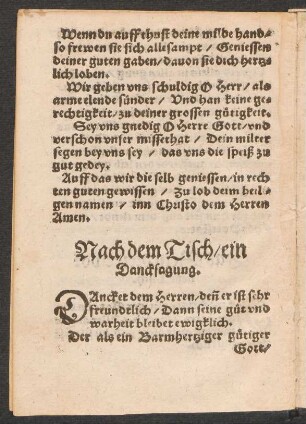 Wenn du auff thust deine milde hand/
so frewen sie sich alle sampt / Geniessen
deiner guten gaben / dauon sie dich hertz-
lich loben.
Wir geben vns schuldig O Herr / als
arme elende sünder / Vnd han keine ge-
rechtigkeit / zu deiner grossen gütigkeit.
Sey vns gnedig O Herre Gott / vnd
verschon vnser missethat / Dein milter
segen bey vns sey / das vns die speiß zu
gut gedey.
Auff das wir die selb geniessen / in rech-
ten guten gewissen / Zu lob deim heili-
gen namen / inn Christo dem Herren
Amen.
Nach dem Tisch / ein
Dancksagung.
DAncket dem Herren / deñ er ist sehr
freundtlich / Dann seine güt vnd
warheit bleibet ewigklich.
Der als ein Barmhertziger gütiger
Gott /